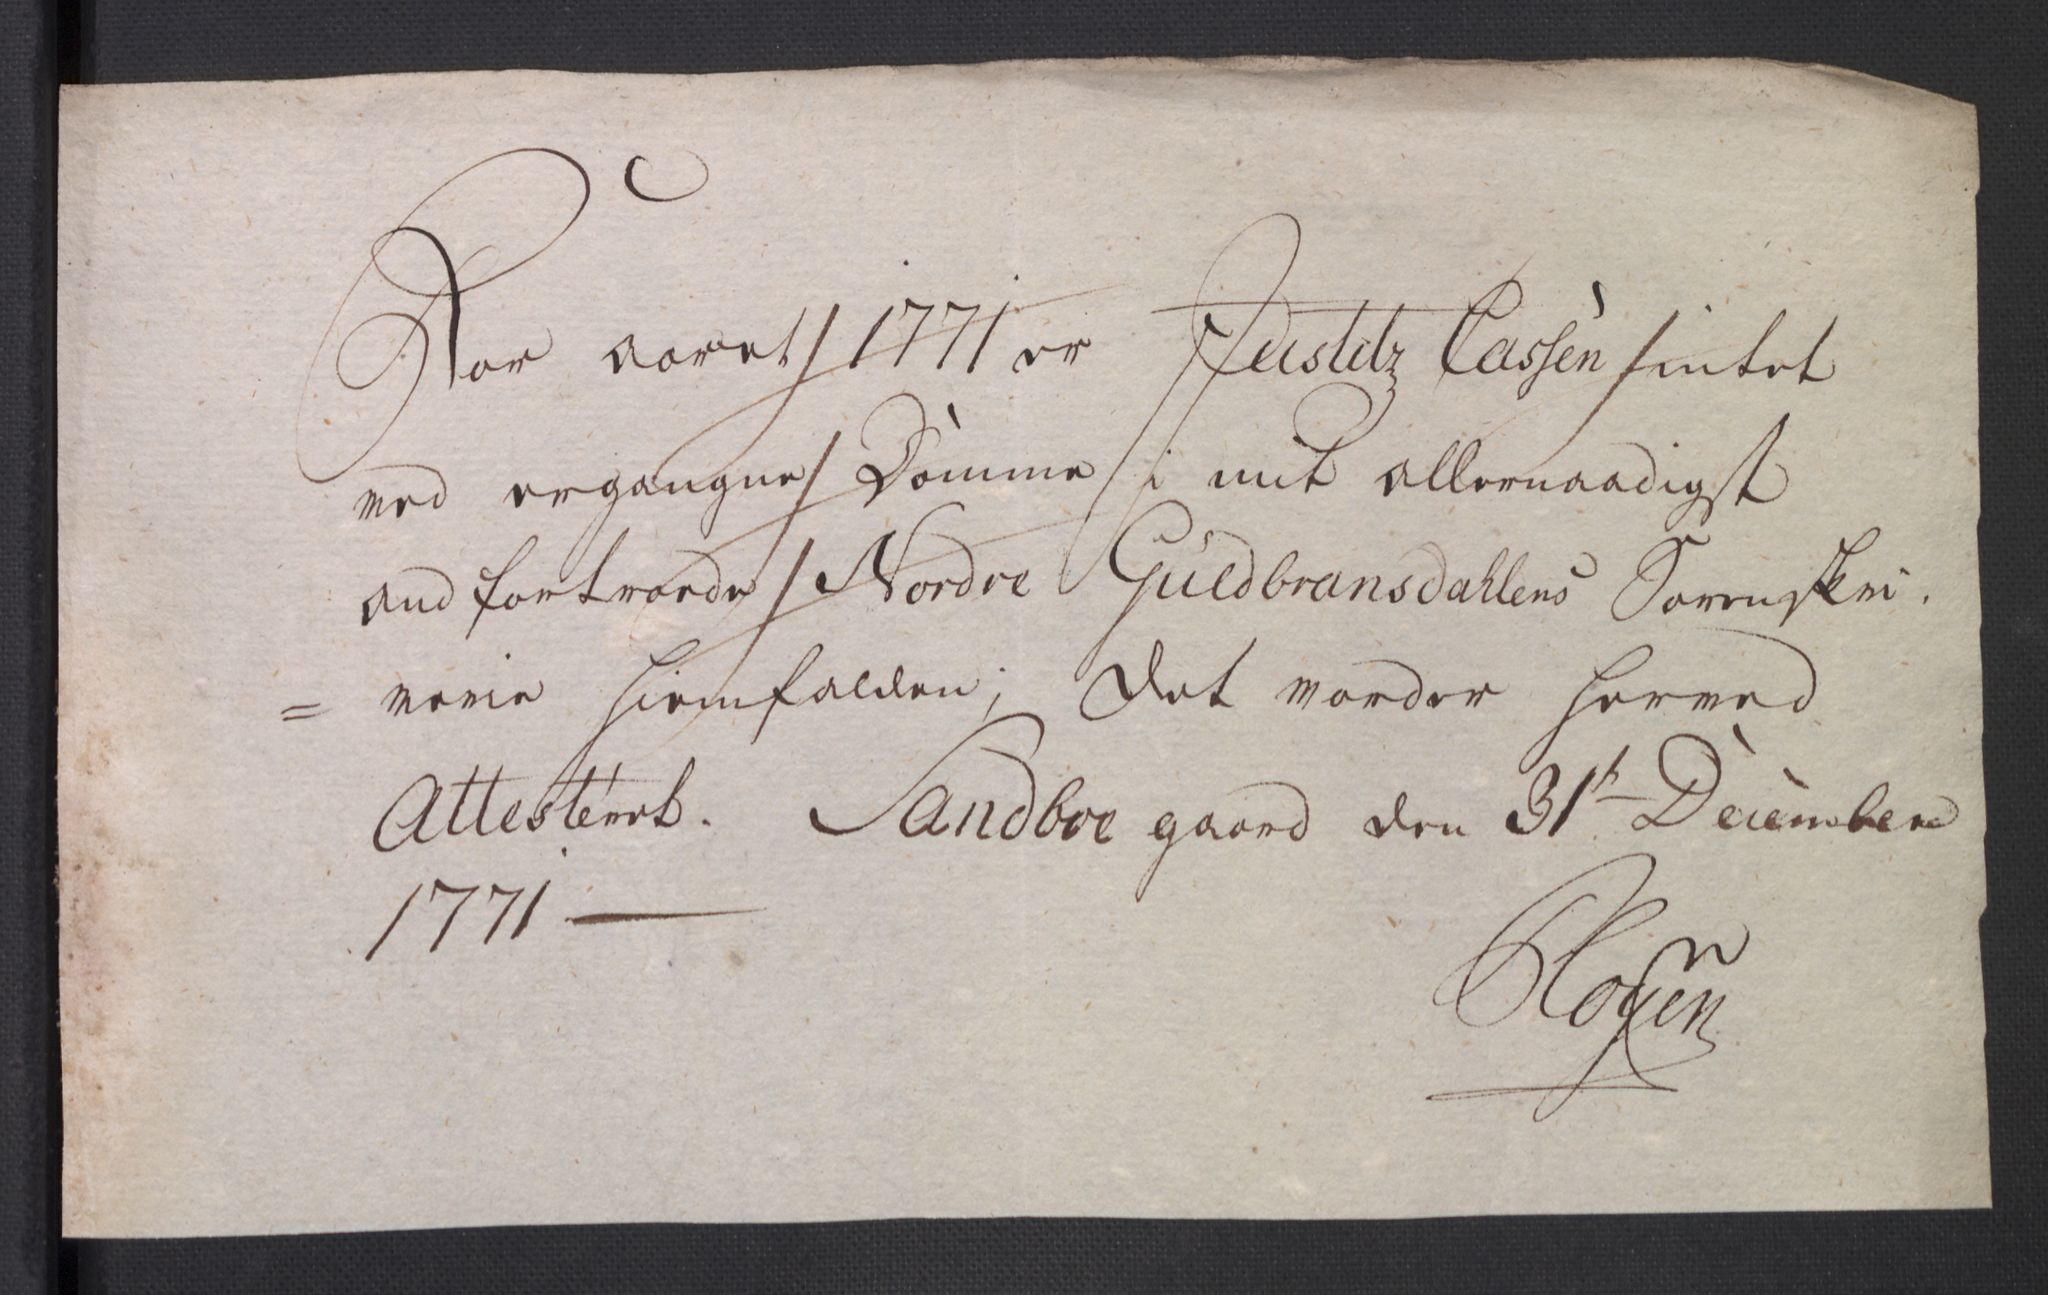 For aaret 1771 er Justitz Cassen intet
ved ergangne Domme i mit allernaadigst
andfortroede Nordre Guldbransdahlens Sorenskri
= verie hiemfalden; Det vorder herved
Attesteret. Sandboe gaard den 31t December
1771